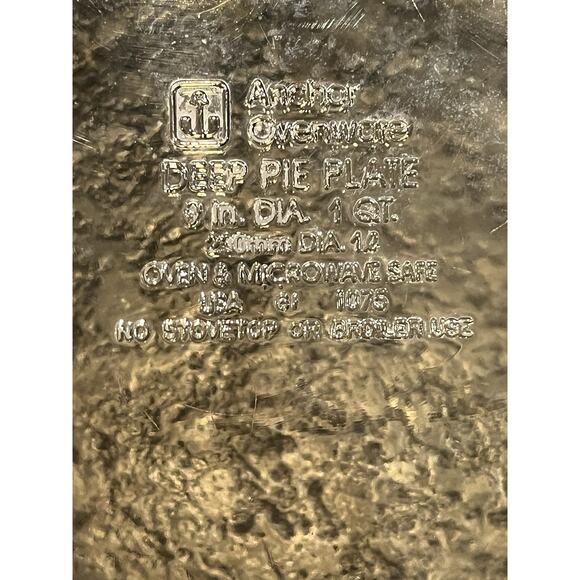 Anchor
Ovenware
DEEP PIE PLATE
9 in. DIA. 1 QT.
DIA.
OVEN & MICROWAVE SAFE
USA 1075
NO STOVETOP OR BROILER USE